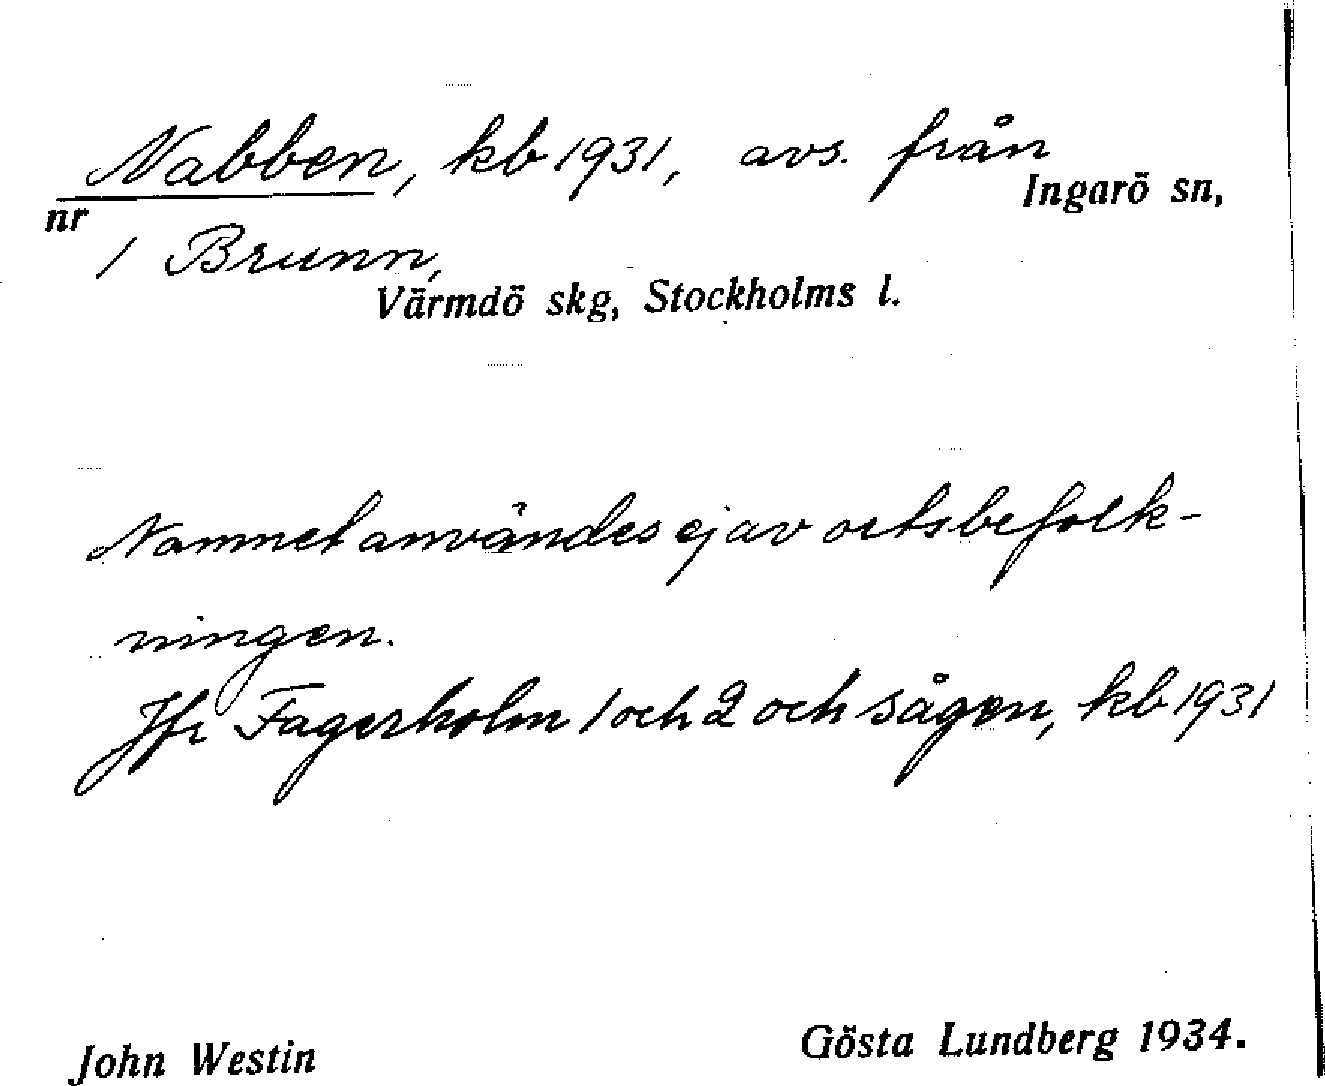 Nabben, kb 1931, avs. från
Ingarö sn,
nr
1 Brunn,
Värmdö skg, Stockholms l.
Namnet användes ej av ortsbefolk-
ningen.
Jfr Fagerholm 1 och 2 och sågen, kb 1931
John Westin
Gösta Lundberg 1934.